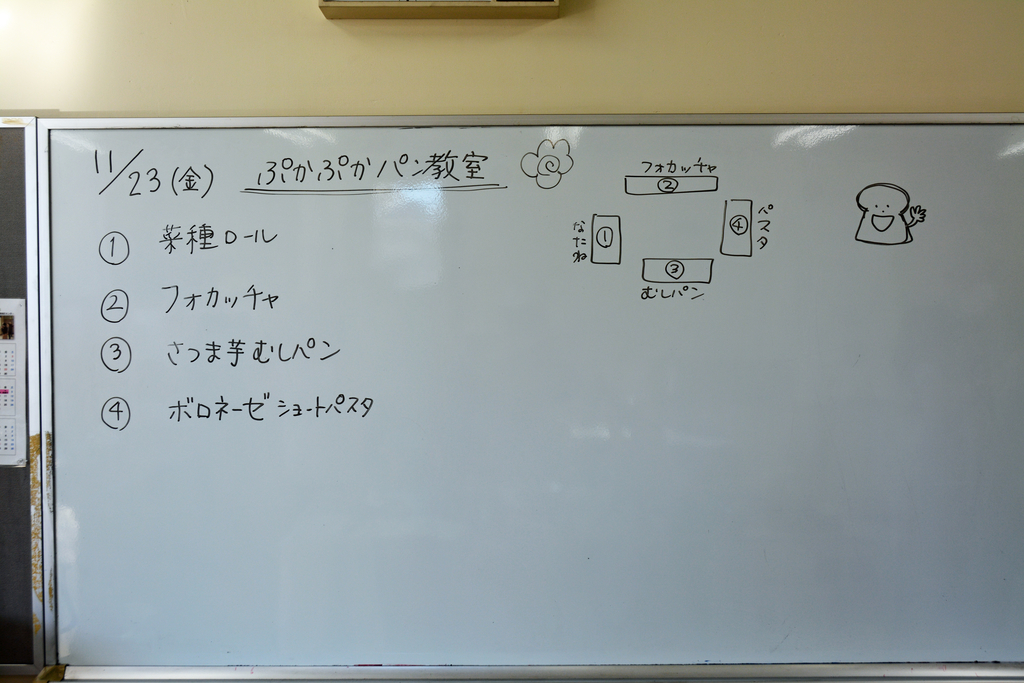 11/23(金) ぷかぷかパン教室
① 菜種ロール
② フォカッチャ
③ さつま芋むしパン
④ ボロネーゼショートパスタ
フォカッチャ
②
なたね
①
④
パスタ
③
むしパン